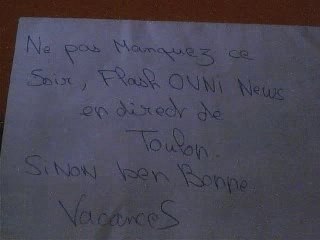 Ne pas Manquez ce
Soir, Flash OVNi News
en direct de
Toulon.
SiNON ben Bonne
VacanceS